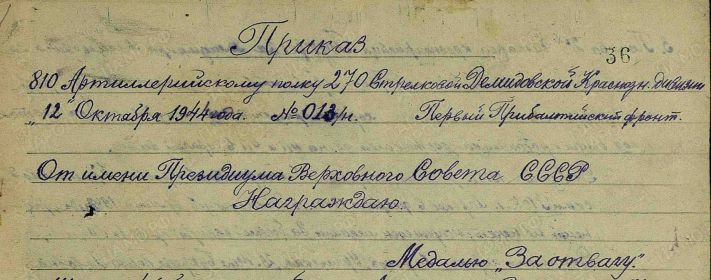 Приказ
36
810 Артиллерийскому полку 270 Стрелковой Демидовской Краснозн. дивизии
„12" Октября 1944 года. № 013/н. Первый Прибалтийский фронт.
От имени Президиума Верховного Совета СССР
Награждаю.
Медалью „За отвагу".